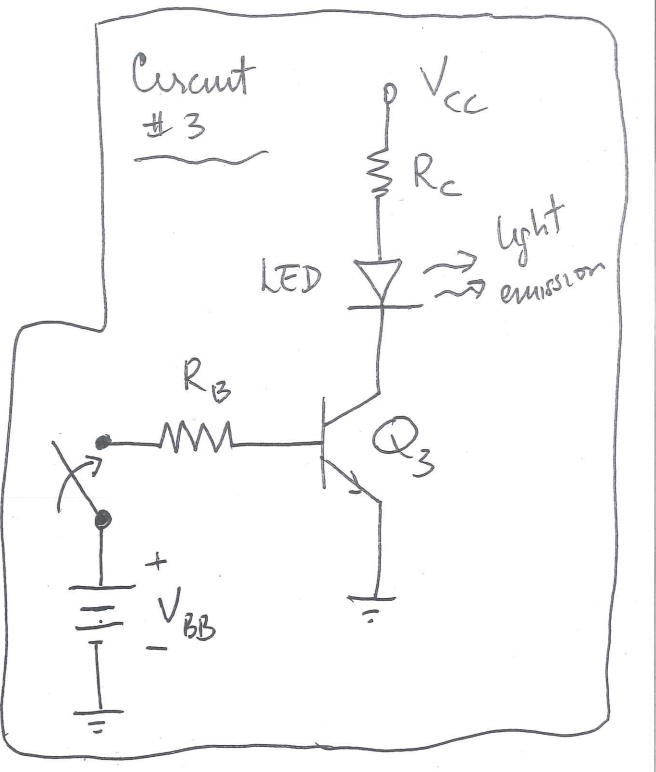 Circuit
# 3
VCC
RC
LED
light
emission
RB
Q3
+
VBB
-